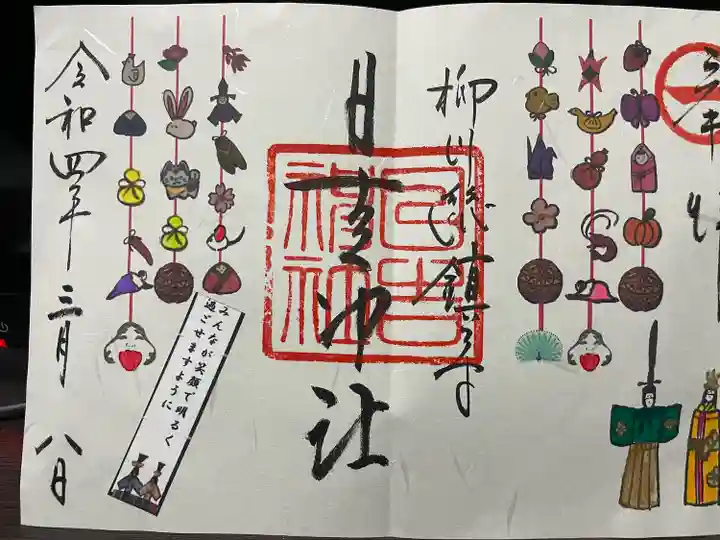 柳川総鎮守
日吉神社
日吉
神社
みんなが笑顔で明るく
過ごせますように
令和四年三月八日